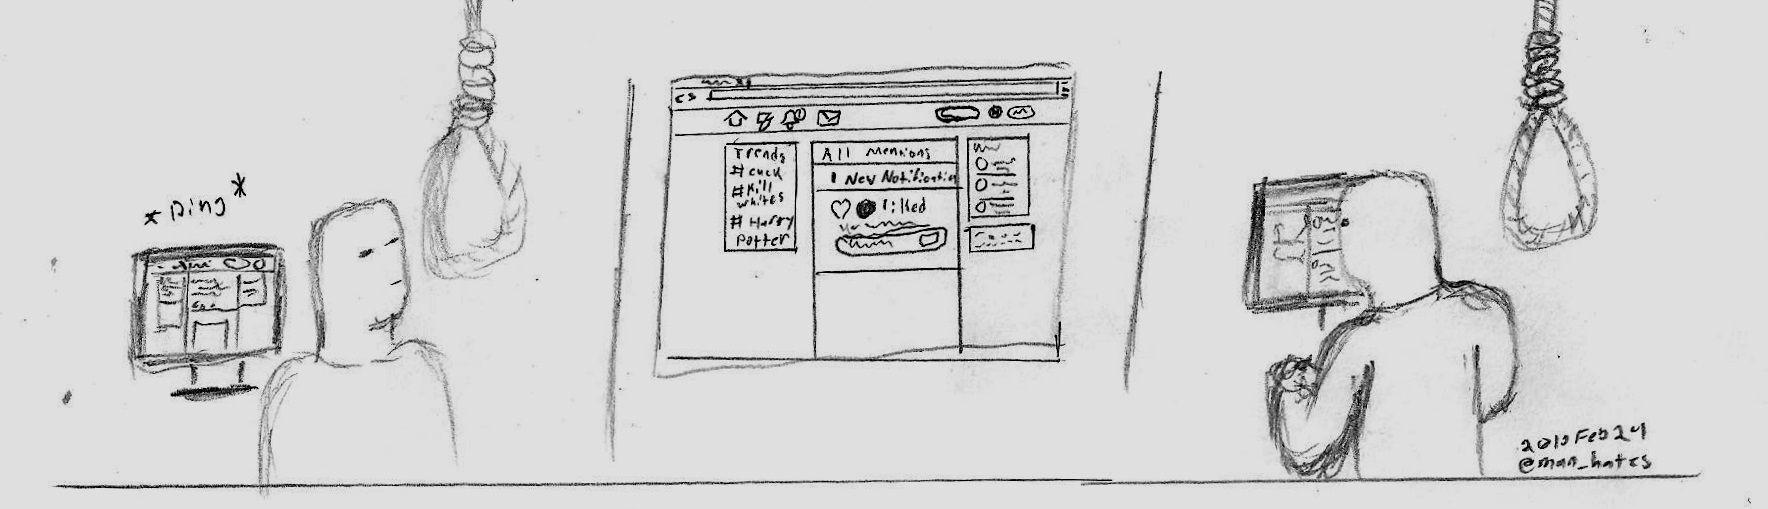 *ping*
Trends
#cuck
#Kill
whites
# Harry
Potter
All Mentions
1 New Notification
liked
@man_hates